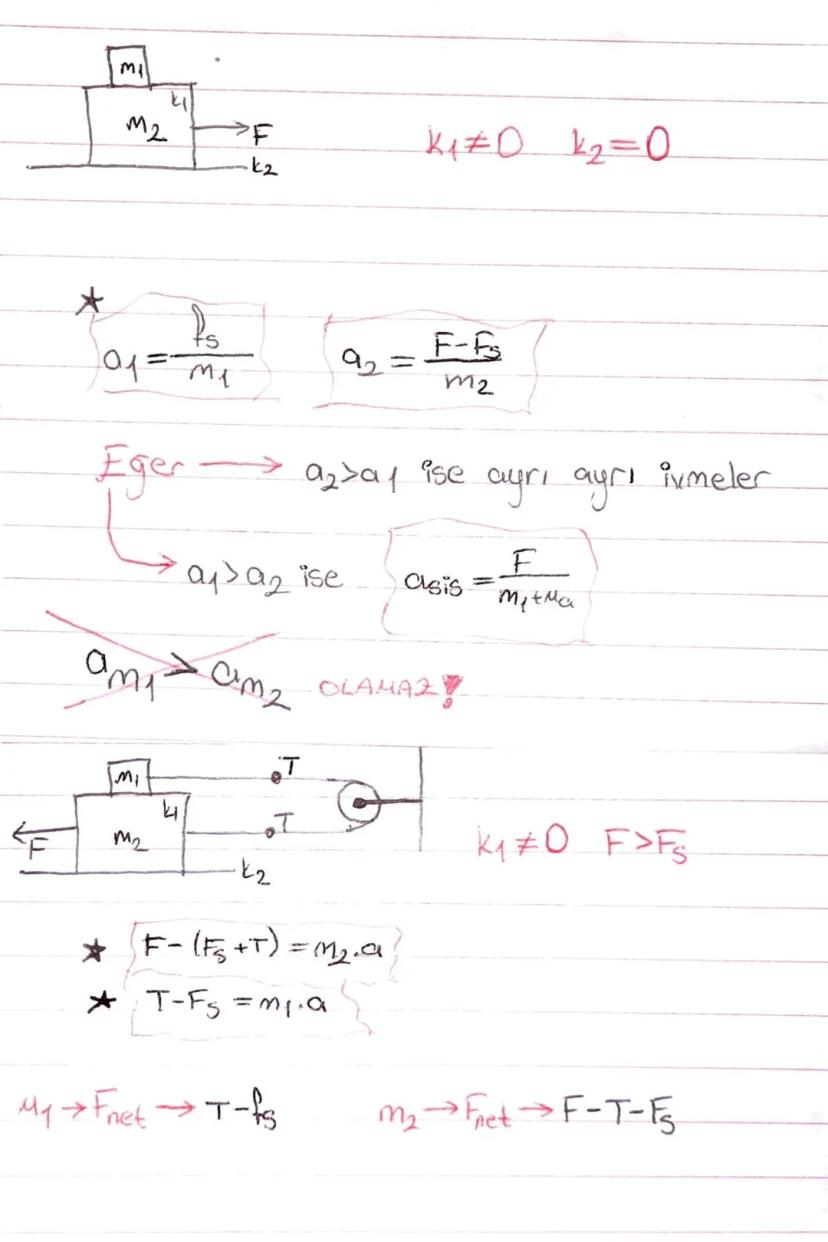 m₁
k₁
m₂ → F
k₂
k₁≠0 k₂=0
★
a₁ = fs/m₁ a₂ = F-Fs/m₂
Eğer → a₂>a₁ ise ayrı ayrı ivmeler
→ a₁>a₂ ise asis = F/m₁+m₂
am₁ > am₂ OLAMAZ!
m₁ T
k₁
F m₂ T
k₂
k₁≠0 F>Fs
★ F-(Fs+T) = m₂.a
★ T-Fs = m₁.a
M₁ → Fnet → T-fs m₂ → Fnet → F-T-Fs